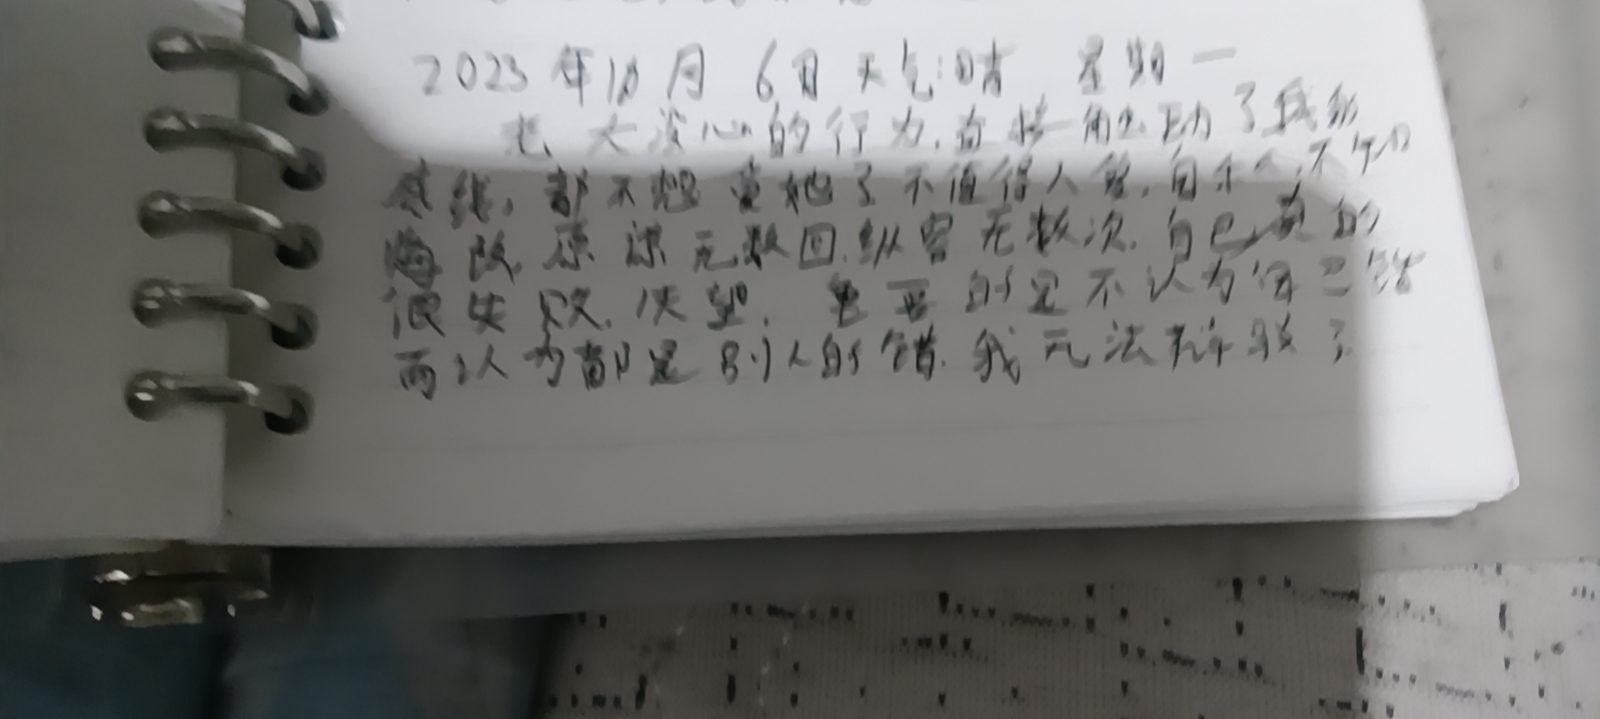 2023年10月 6日 天气:晴 星期一
老大没心的行为,直接触动了我的
底线,都不想童她了不值得人 自 不知
悔改,原谅无数回,纵容无数次,自己真的
很失败,失望,重要的是不认为自己错
而以为都是别人的错,我无法辩驳了